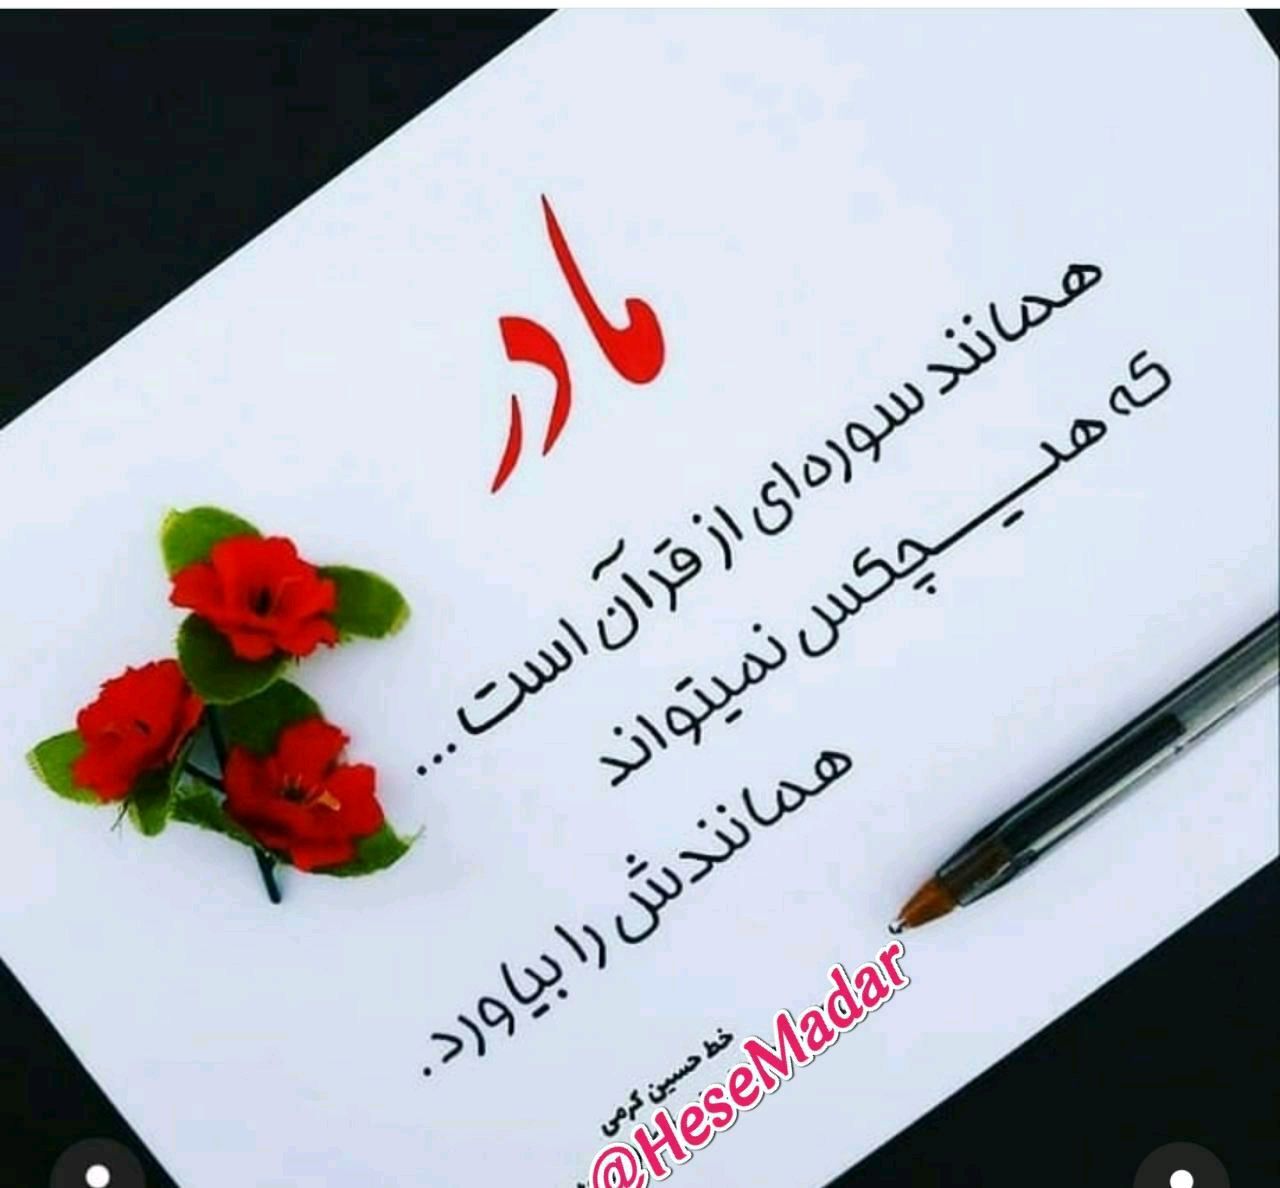 مادر
همانند سوره‌ای از قرآن است...
که هیچکس نمیتواند
همانندش را بیاورد.
خط حسین کرمی
@HeseMadar